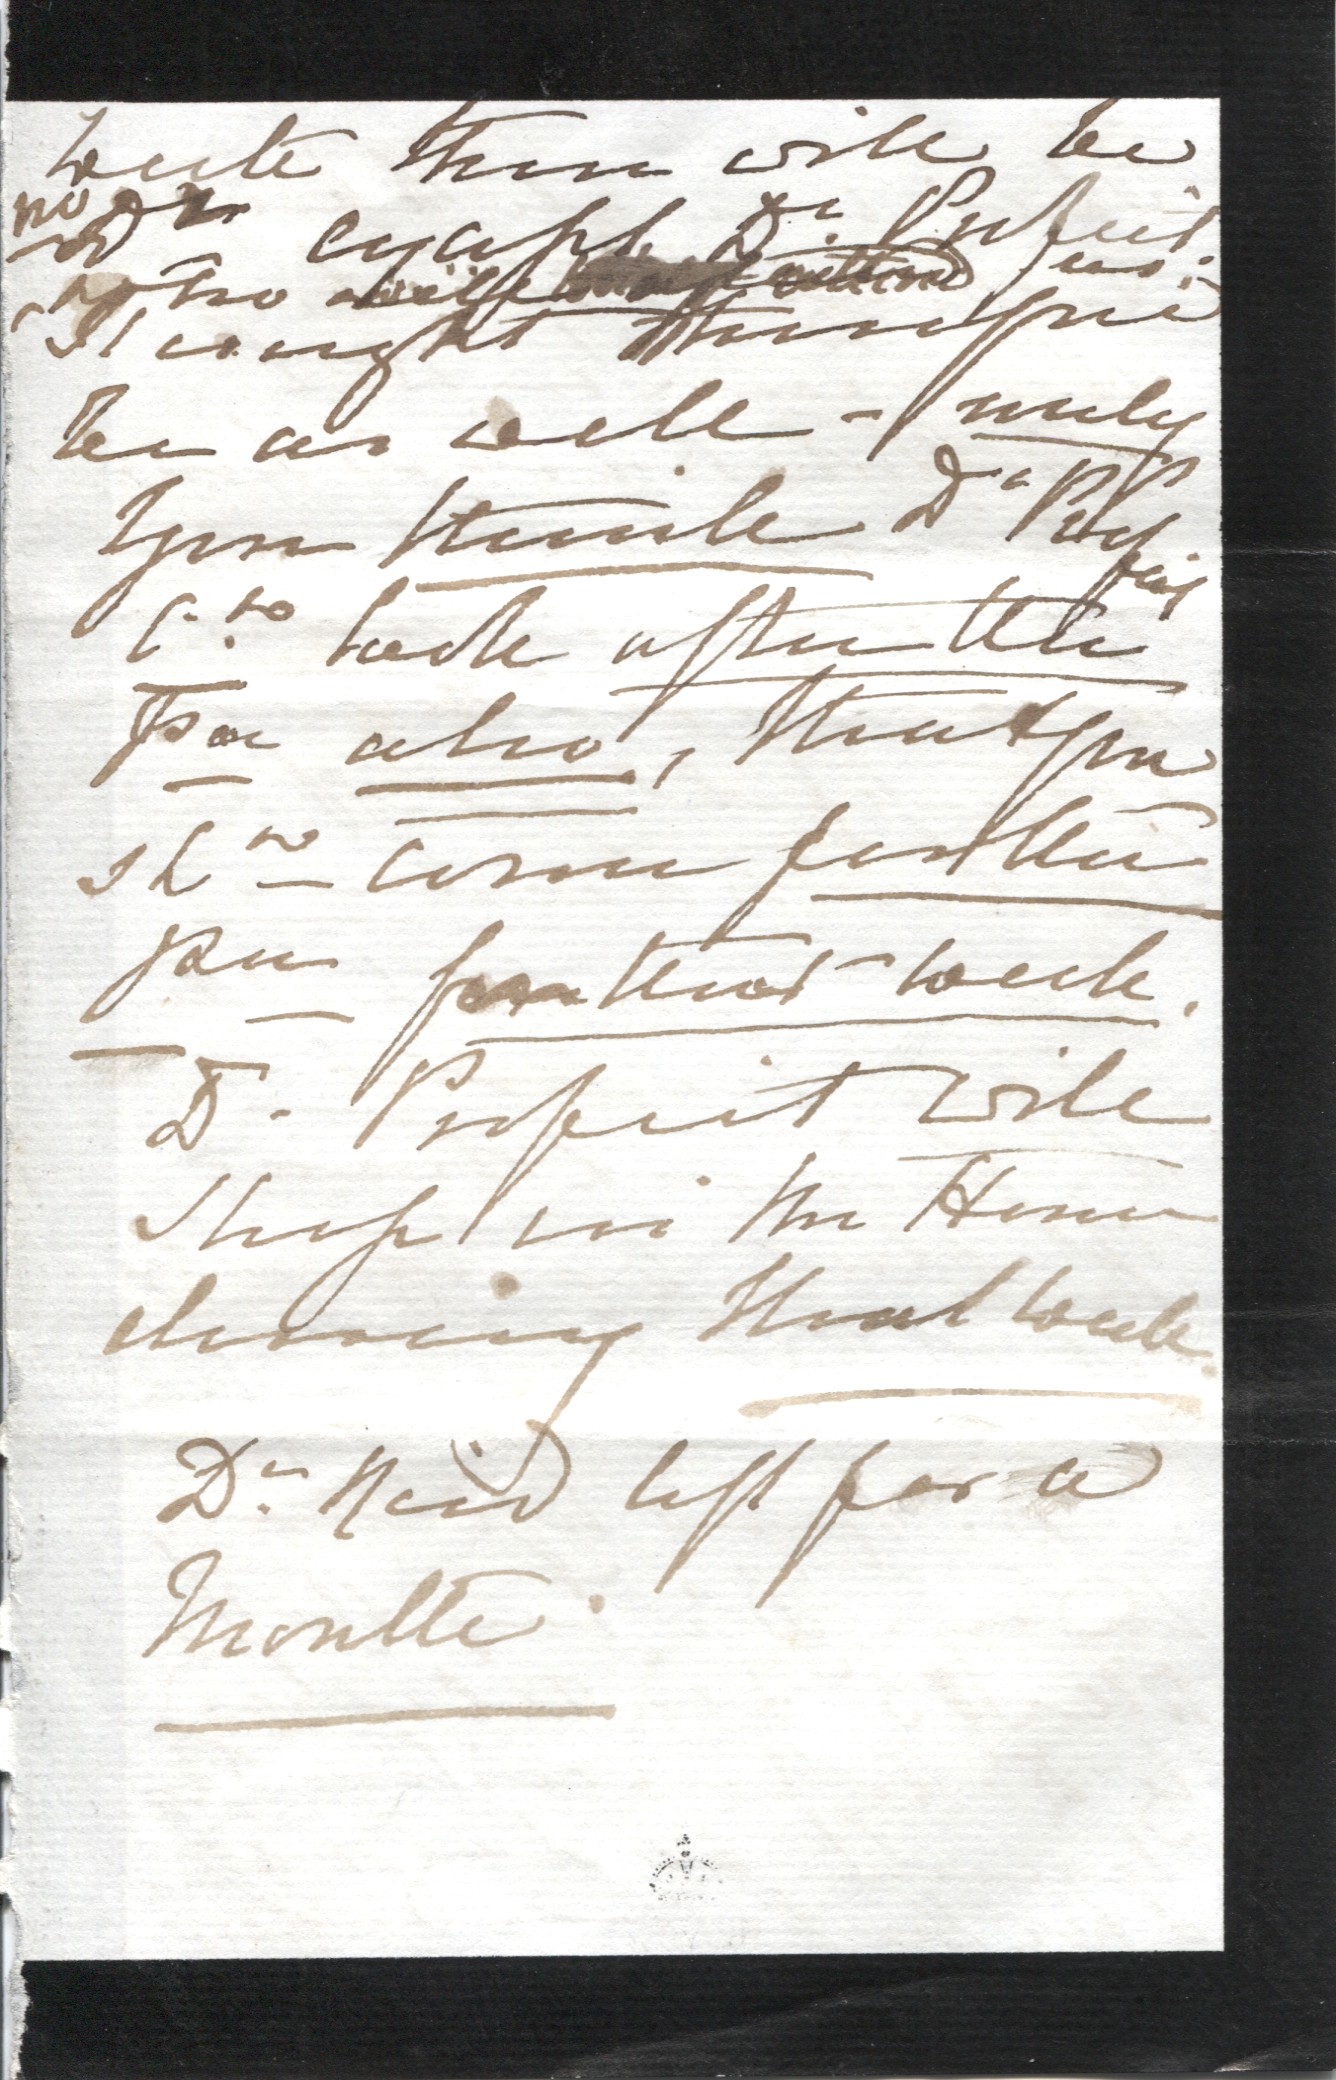 week there will be
no Dr. except Dr. Profeit
who will
It might therefore
be as well - only
you think Dr. Prof
feit
cd. look after the
Poor also, that you
shd. come for the
poor for that week.
Dr. Profeit will
sleep in the House
during that week.
Dr. Reid left for a
Month.